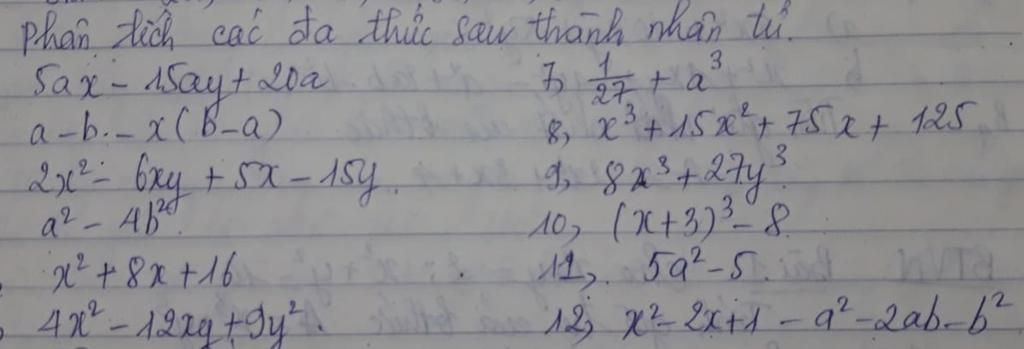 Phân tích các đa thức sau thành nhân tử.
5ax - 15ay + 20a
a - b - x(b - a)
2x² - 6xy + 5x - 15y.
a² - 4b².
x² + 8x + 16
4x² - 12xy + 9y².
7, 1/27 + a³
8, x³ + 15x² + 75x + 125
9, 8x³ + 27y³.
10, (x+3)³ - 8.
11, 5a² - 5.
12, x² - 2x + 1 - a² - 2ab - b²